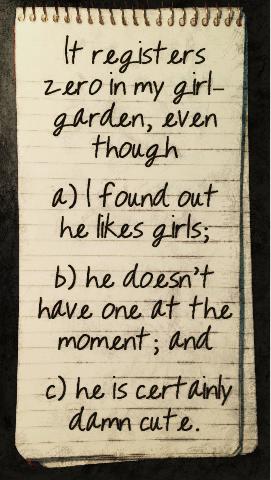 It registers
zero in my girl-
garden, even
though
a) I found out
he likes girls;
b) he doesn't
have one at the
moment; and
c) he is certainly
damn cute.